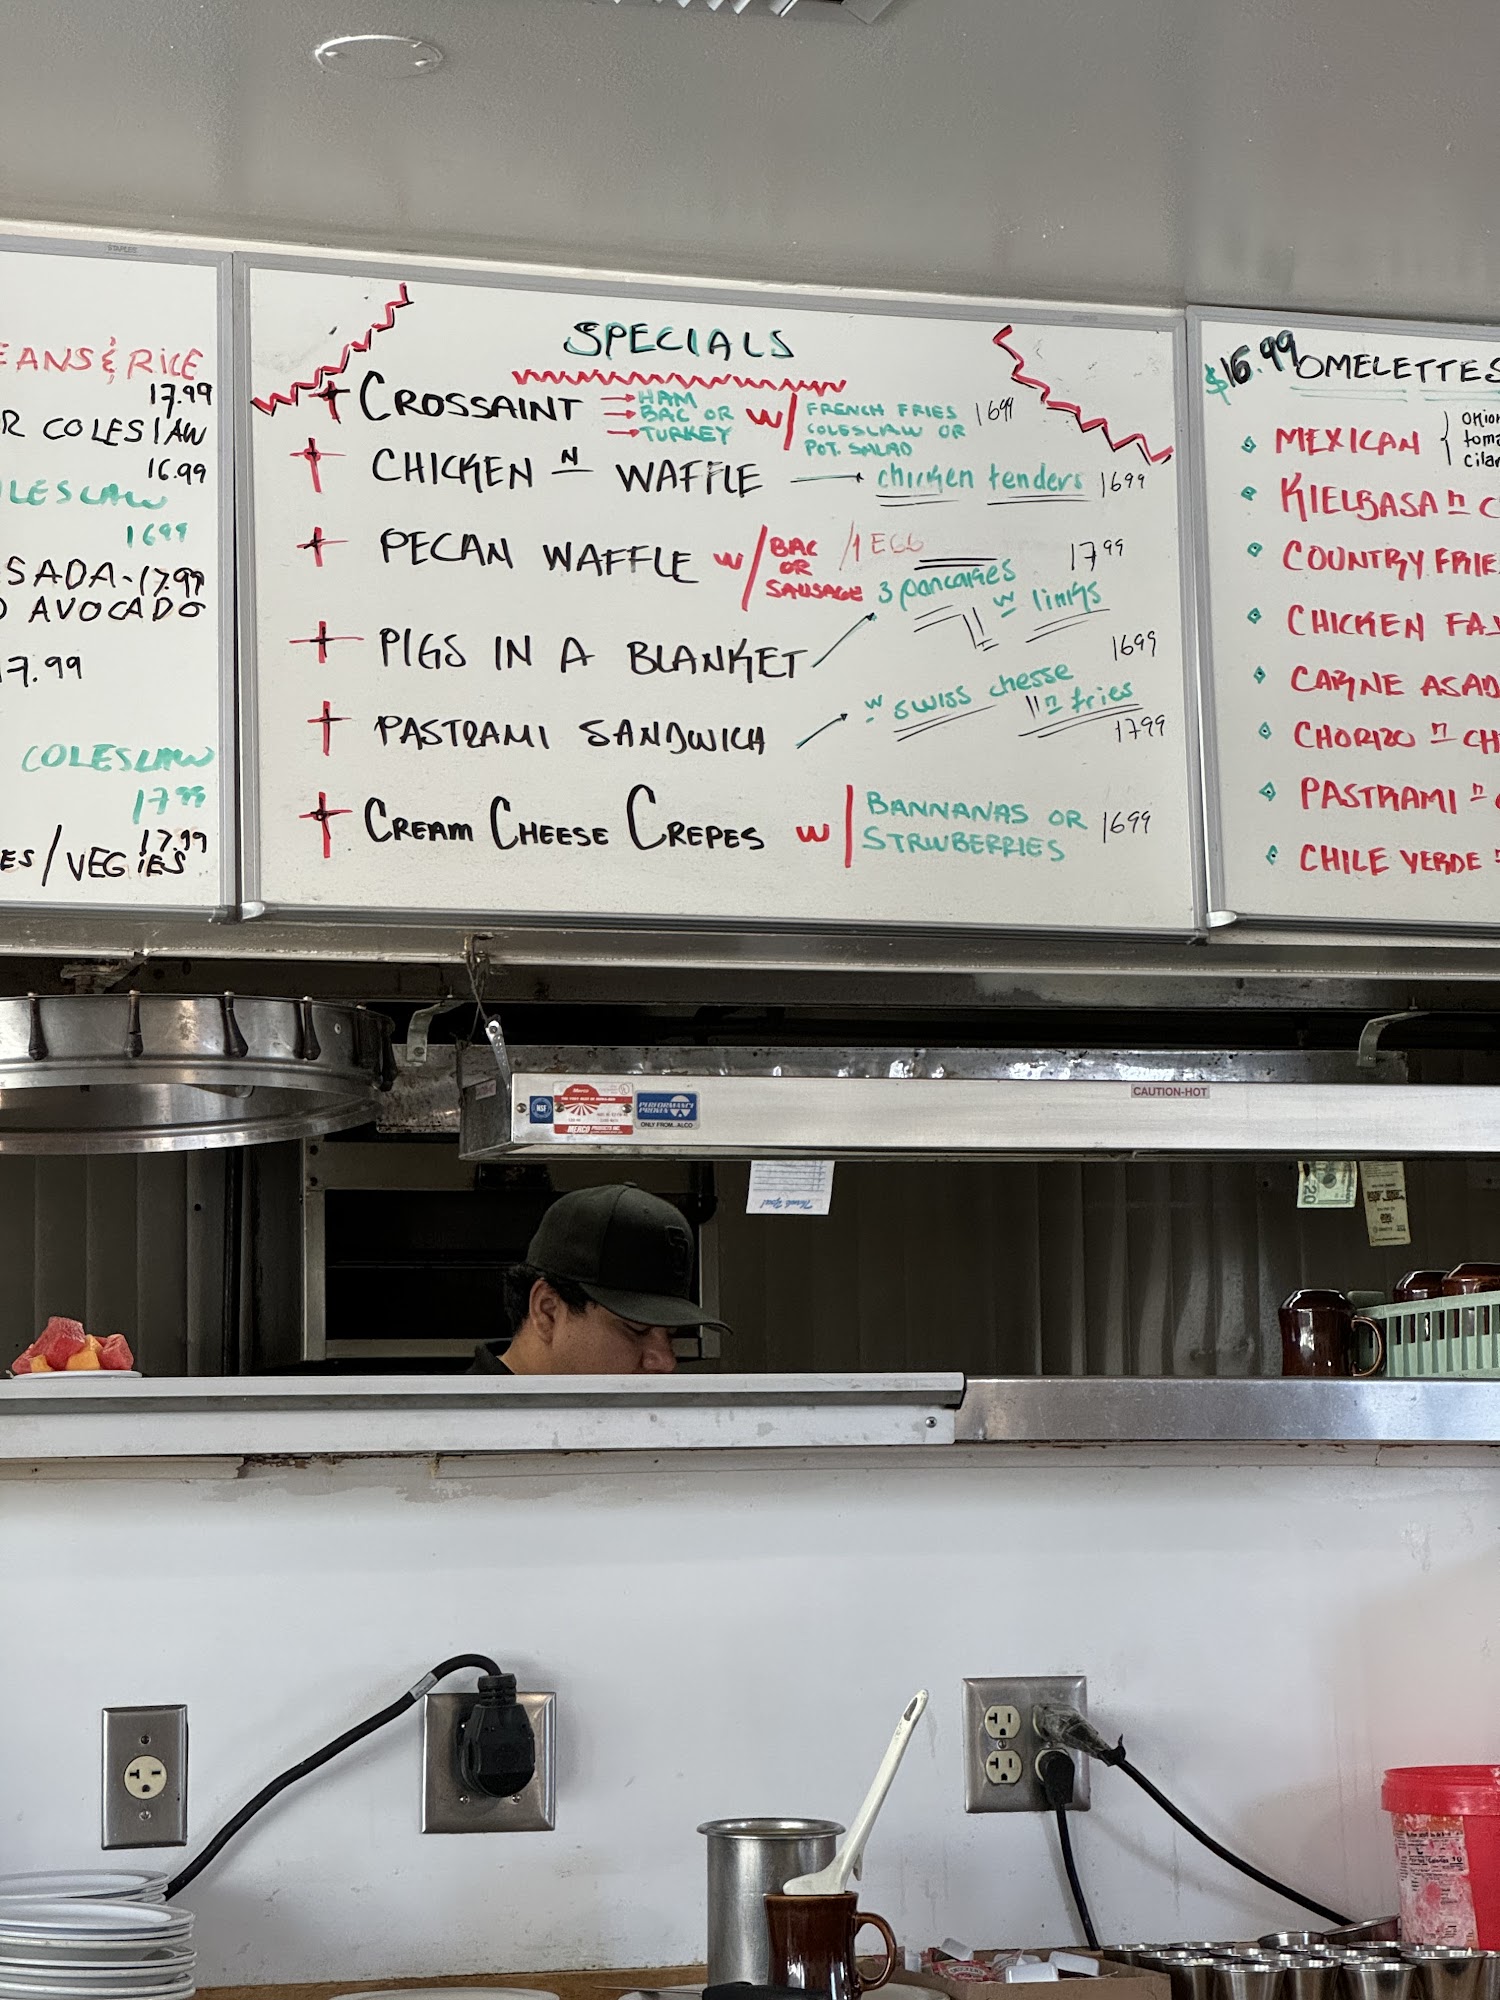 STAPLES
EANS & RICE
17.99
R COLESLAW
16.99
LESLAW
1699
SADA-17.99
O AVOCADO
7.99
COLESLAW
1799
17.99
ES/VEGIES
SPECIALS
CROSSAINT → HAM → BAC OR → TURKEY w/ FRENCH FRIES COLESLAW OR POT. SALAD 1699
CHICKEN N WAFFLE → chicken tenders 1699
PECAN WAFFLE w/ BAC OR SAUSAGE /1 EGG 1799
PIGS IN A BLANKET 3 pancakes w links 1699
PASTRAMI SANDWICH w swiss chesse n fries 1799
CREAM CHEESE CREPES w/ BANNANAS OR STRWBERRIES 1699
$16.99 OMELETTES
MEXICAN { onion
toma
cilan
KIELBASA n C
COUNTRY FRIE
CHICKEN FAJ
CARNE ASAD
CHORIZO n CH
PASTRAMI n
CHILE VERDE
NSF
Merco
MERCO PRODUCTS INC.
PERFORMANCE PROVEN
ONLY FROM...ALCO
CAUTION-HOT
Thank You!
20